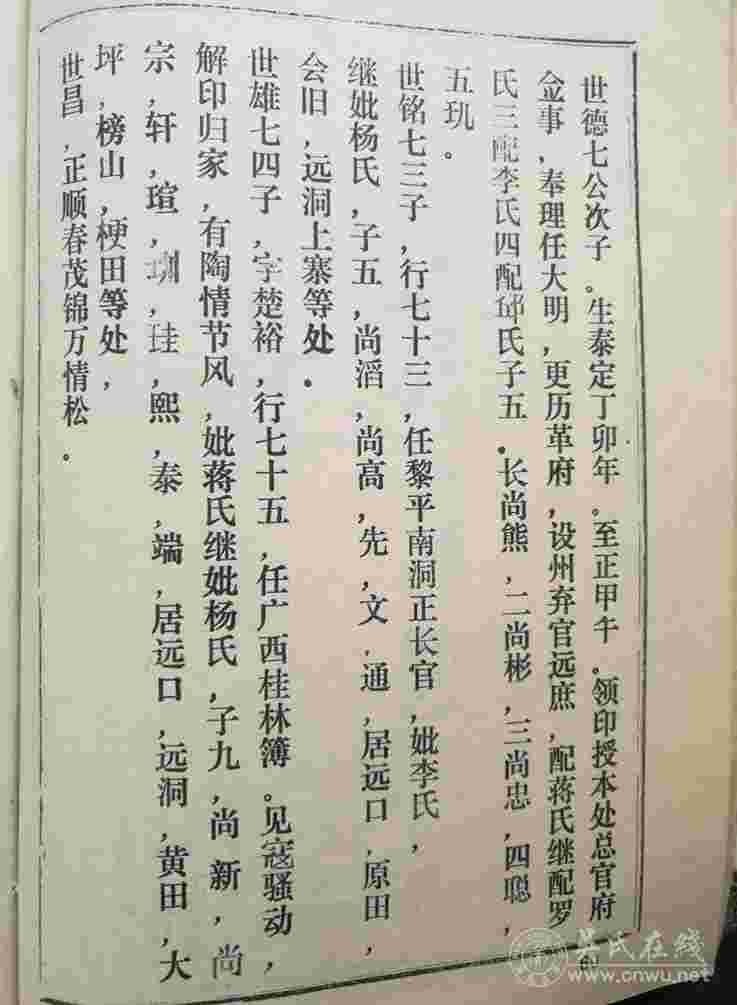 世德七公次子。生泰定丁卯年。至正甲午。领印授本处总官府
佥事,奉理任大明,更历革府,设州弃官远庶,配蒋氏继配罗
氏三配李氏四配邱氏子五.长尚熊,二尚彬,三尚忠,四聪,
五玑。
世铭七三子,行七十三,任黎平南洞正长官,妣李氏,
继妣杨氏,子五,尚滔,尚高,先,文,通,居远口,原田,
会旧,远洞上寨等处.
世雄七四子,字楚裕,行七十五,任广西桂林簿。见寇骚动,
解印归家,有陶情节风,妣蒋氏继妣杨氏,子九,尚新,尚
宗,轩,瑄,圳,珪,熙,泰,端,居远口,远洞,黄田,大
坪,榜山,梗田等处,
世昌,正顺春茂锦万情松。
吴氏在线
www.cnwu.net